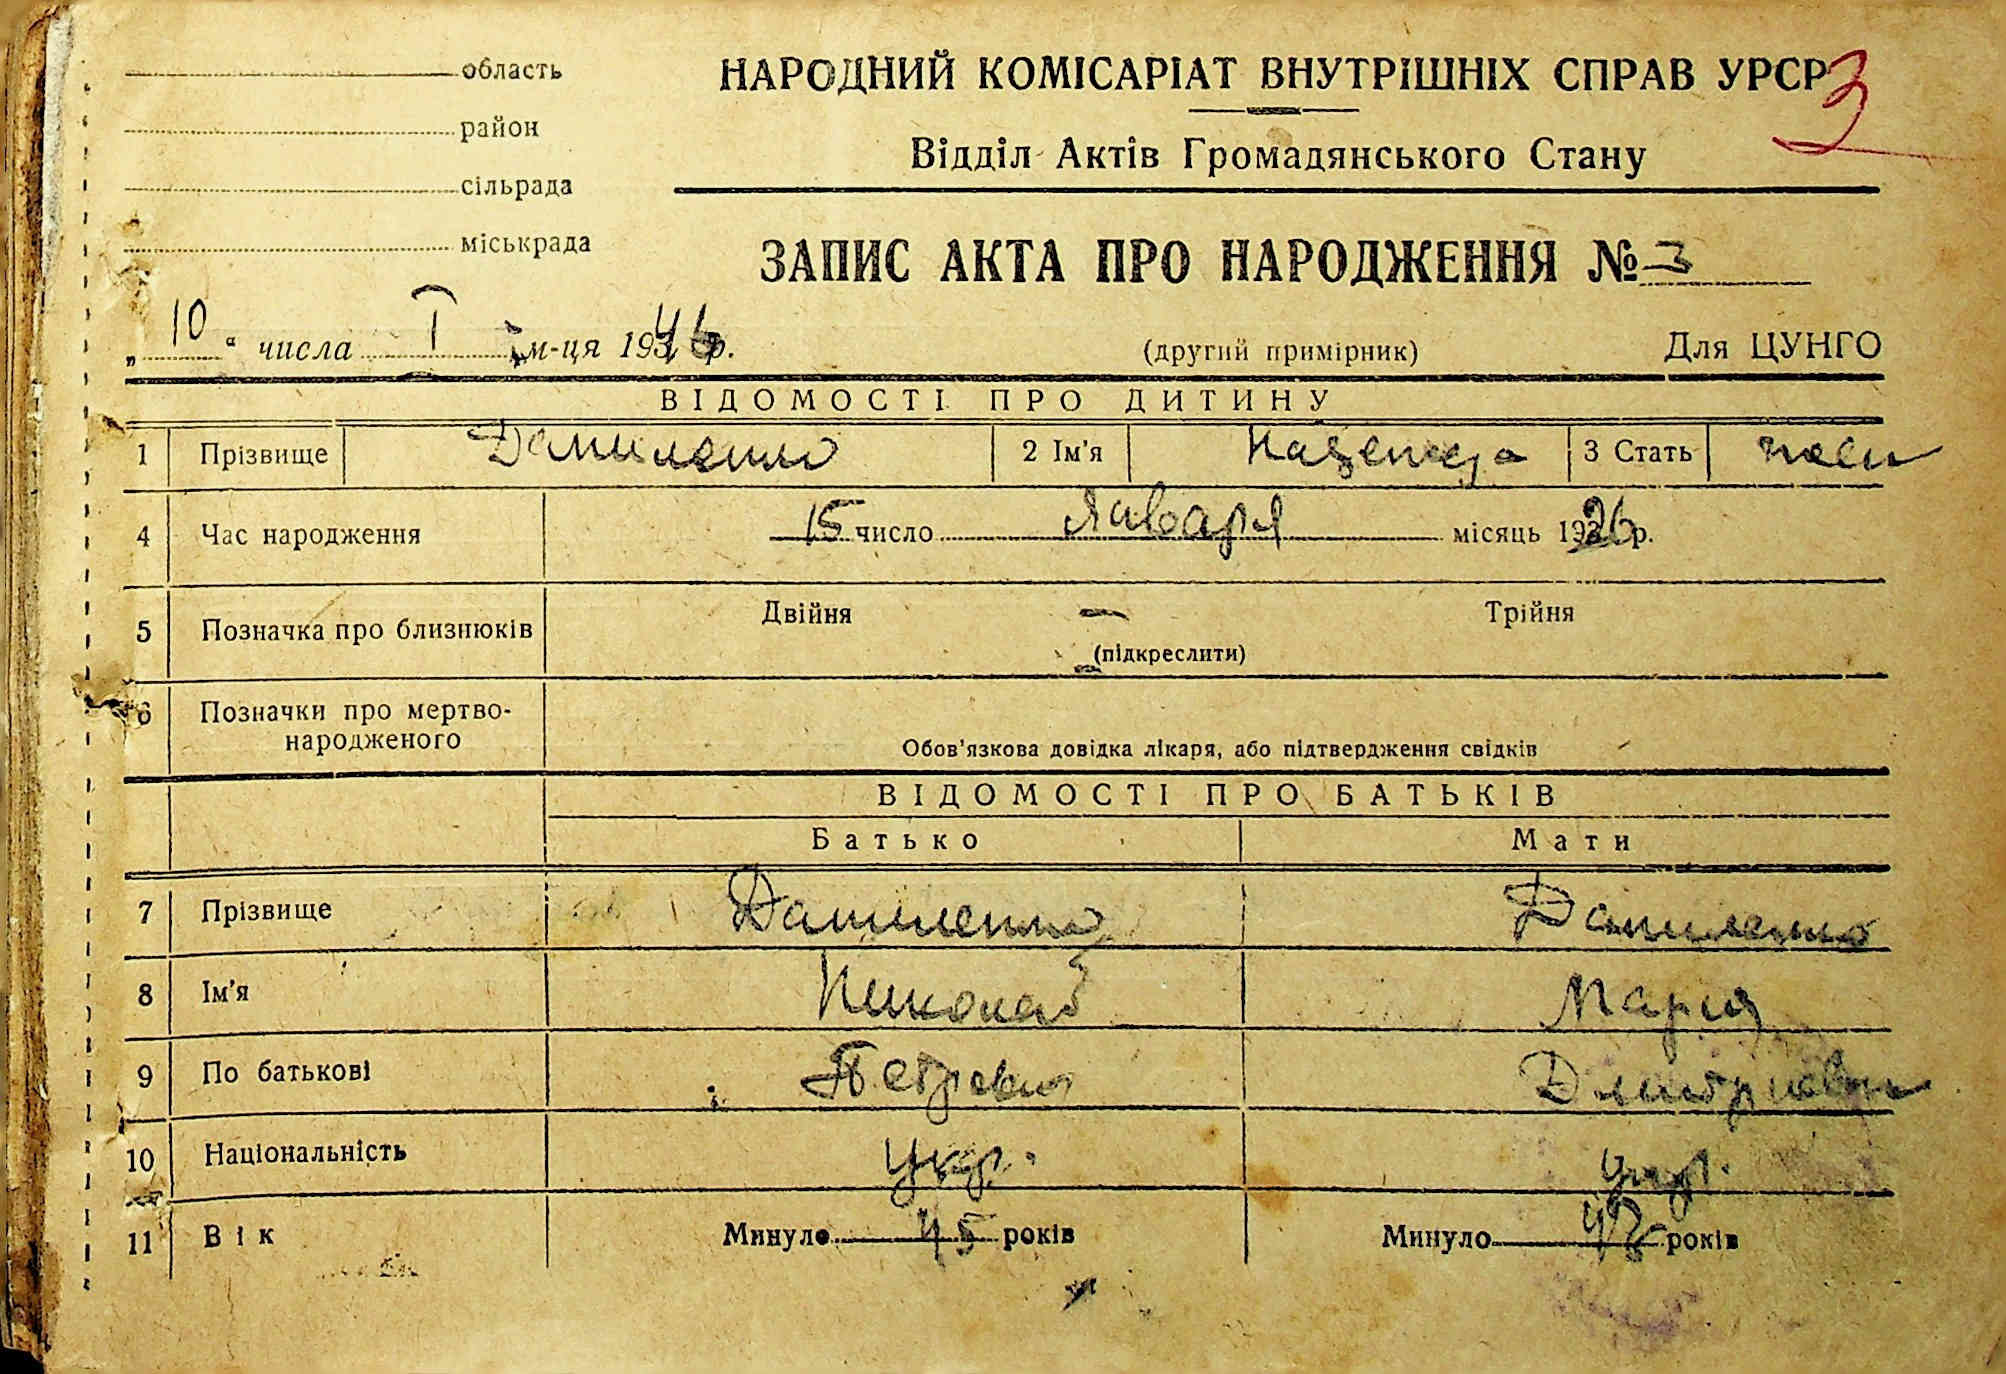 область
НАРОДНИЙ КОМІСАРІАТ ВНУТРІШНІХ СПРАВ УРСР
3
район
Відділ Актів Громадянського Стану
сільрада
міськрада
ЗАПИС АКТА ПРО НАРОДЖЕННЯ № 3
„ 10 “ числа I м-ця 1946 р.
(другий примірник)
Для ЦУНГО
ВІДОМОСТІ ПРО ДИТИНУ
1 Прізвище Даниленко 2 Ім'я Надежда 3 Стать жен
4 Час народження 15 число Января місяць 1926 р.
5 Позначка про близнюків Двійня — Трійня
(підкреслити)
6 Позначки про мертво-
народженого
Обов'язкова довідка лікаря, або підтвердження свідків
ВІДОМОСТІ ПРО БАТЬКІВ
Батько Мати
7 Прізвище Даниленко Даниленко
8 Ім'я Николай Мария
9 По батькові Петрович Дмитриевна
10 Національність укр. укр.
11 Вік Минуло 45 років Минуло років